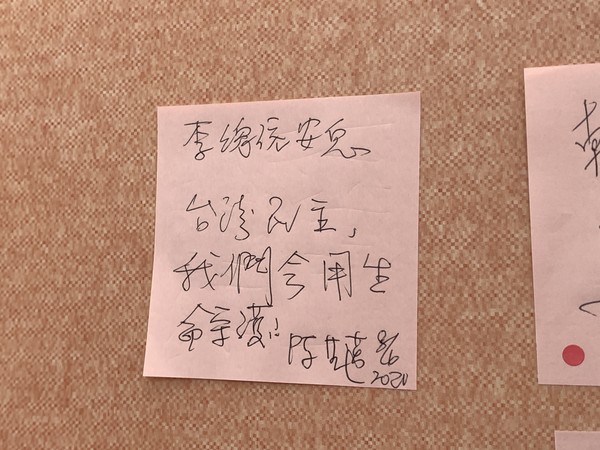 李總統安息
台湾民主,
我們会用生
命守護!
陳 8/6
2020